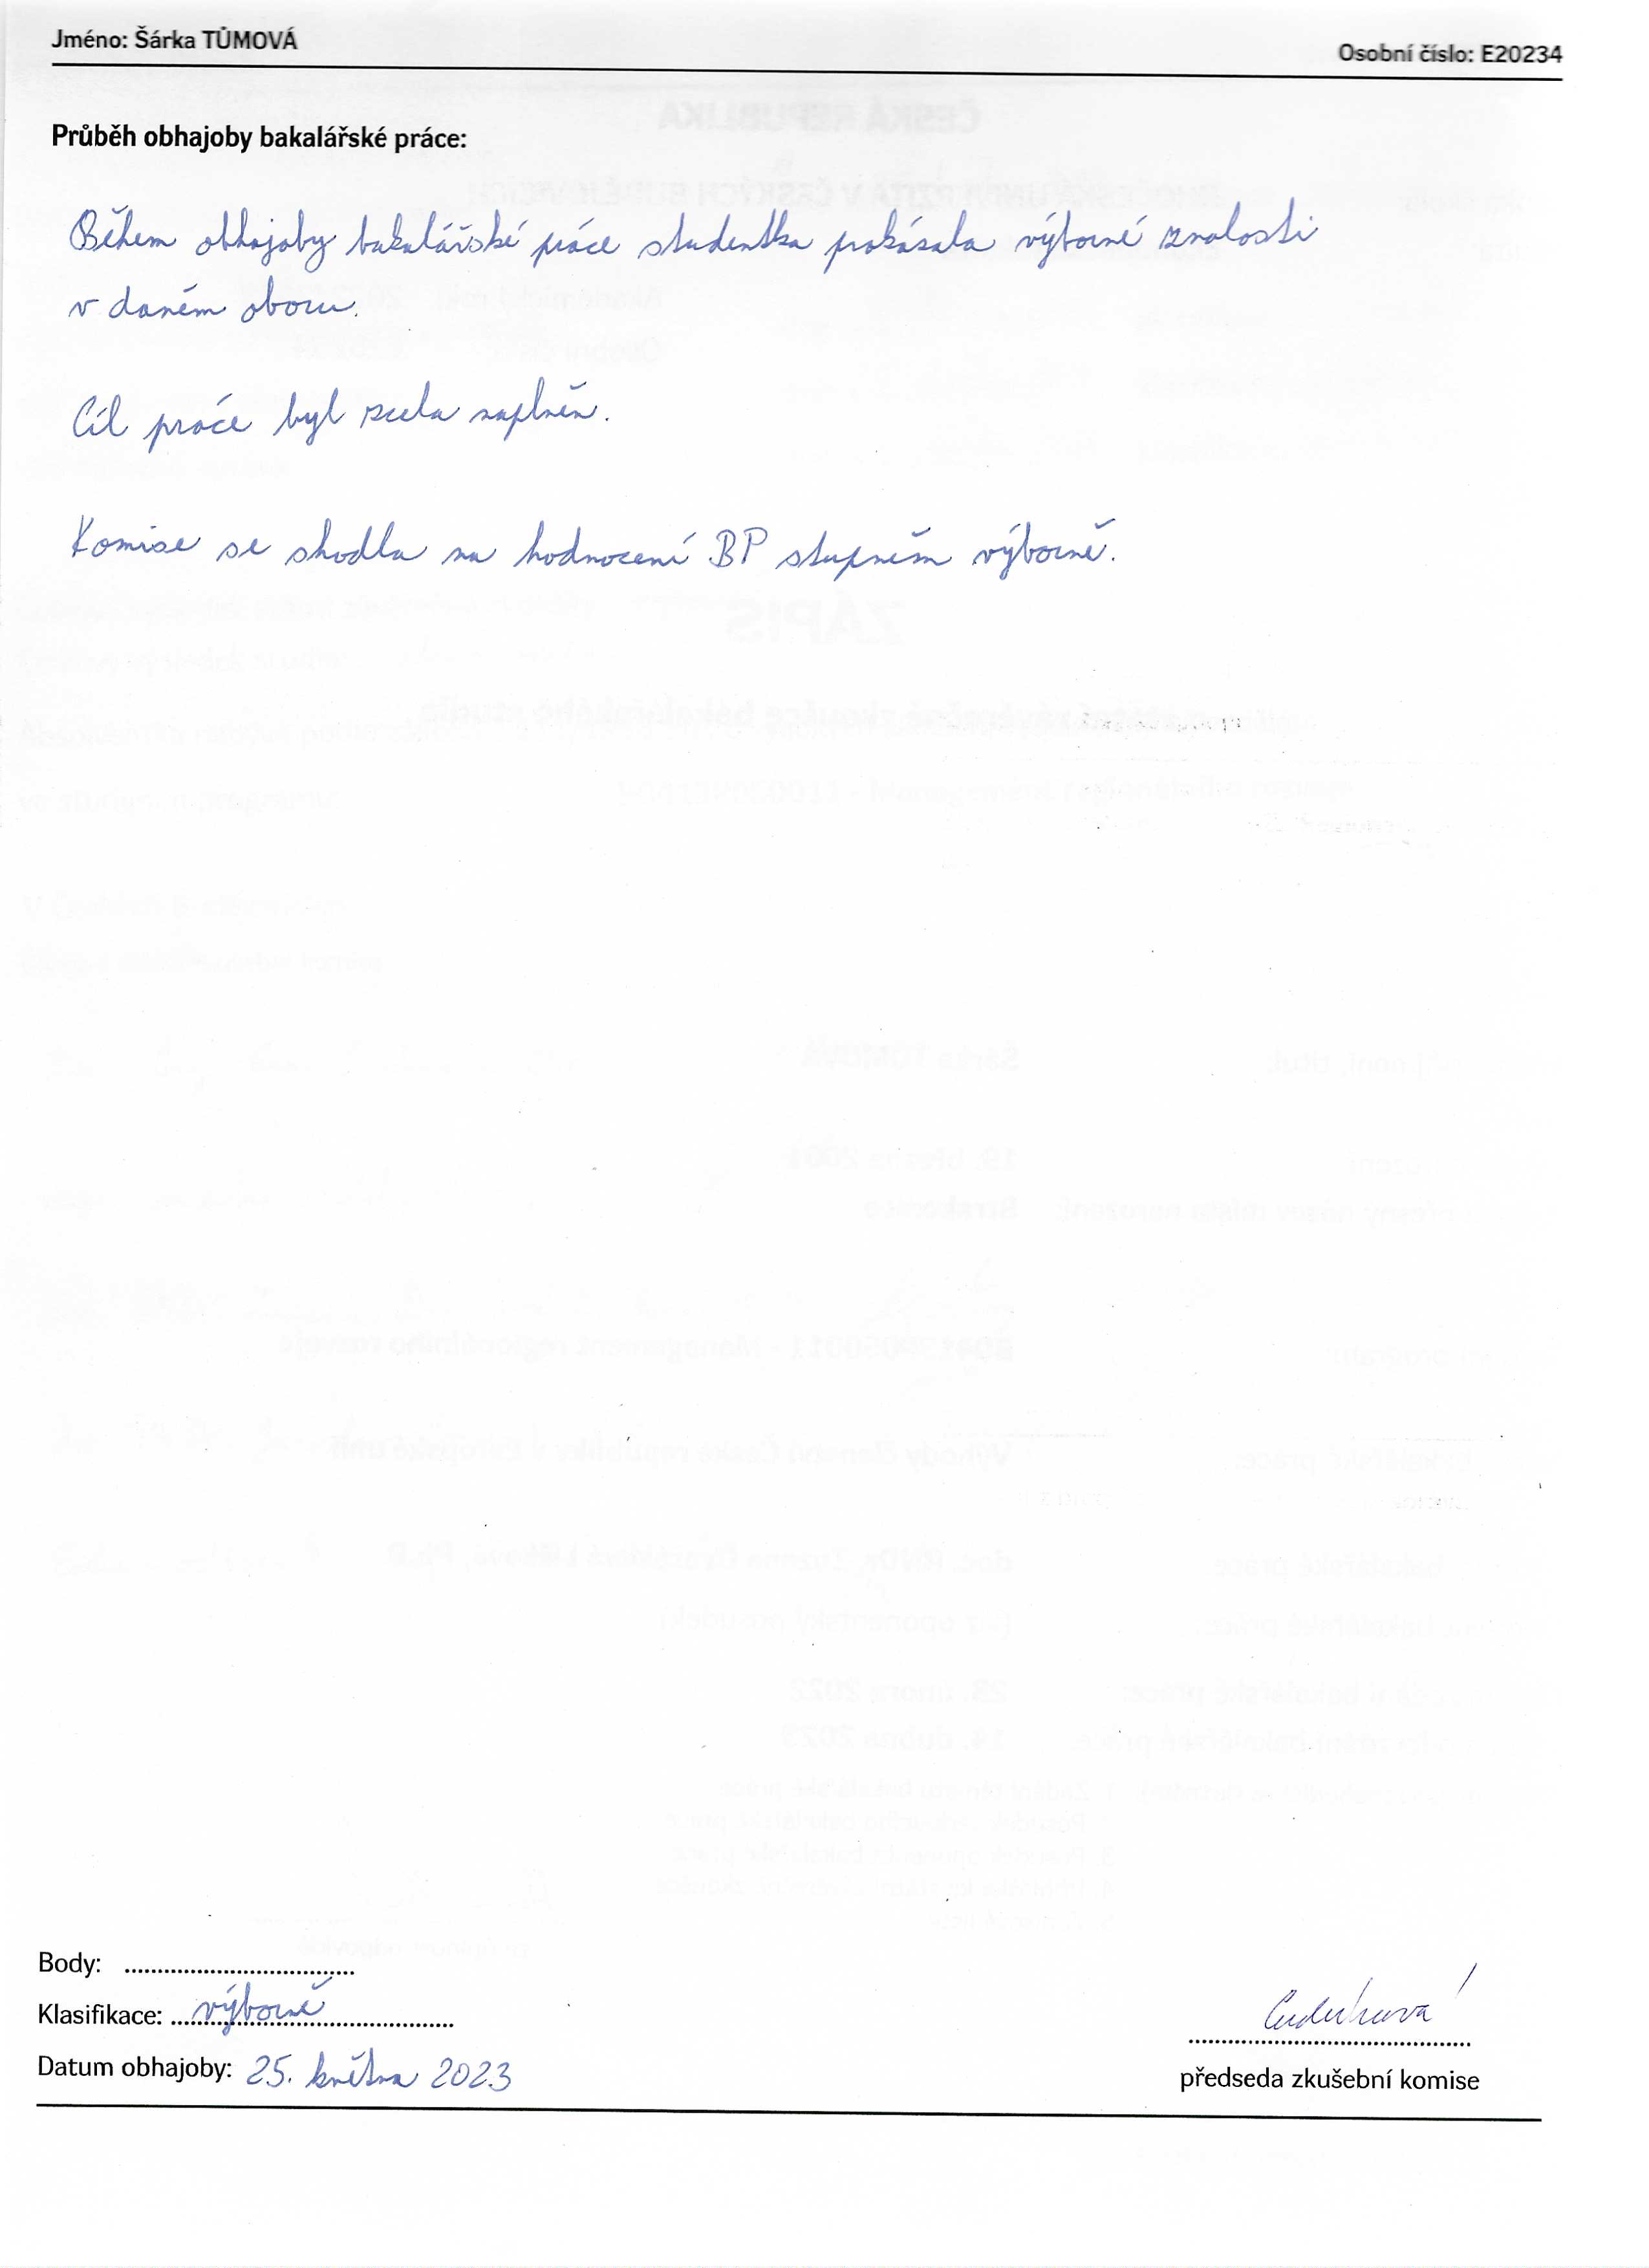 Jméno: Šárka TŮMOVÁ
Osobní číslo: E20234
Průběh obhajoby bakalářské práce:
Během obhajoby bakalářské práce studentka prokázala výborné znalosti
v daném oboru.
Cíl práce byl zcela naplněn.
Komise se shodla na hodnocení BP stupněm výborně.
Body: ...................................
Klasifikace: výborně
Datum obhajoby: 25. května 2023
předseda zkušební komise